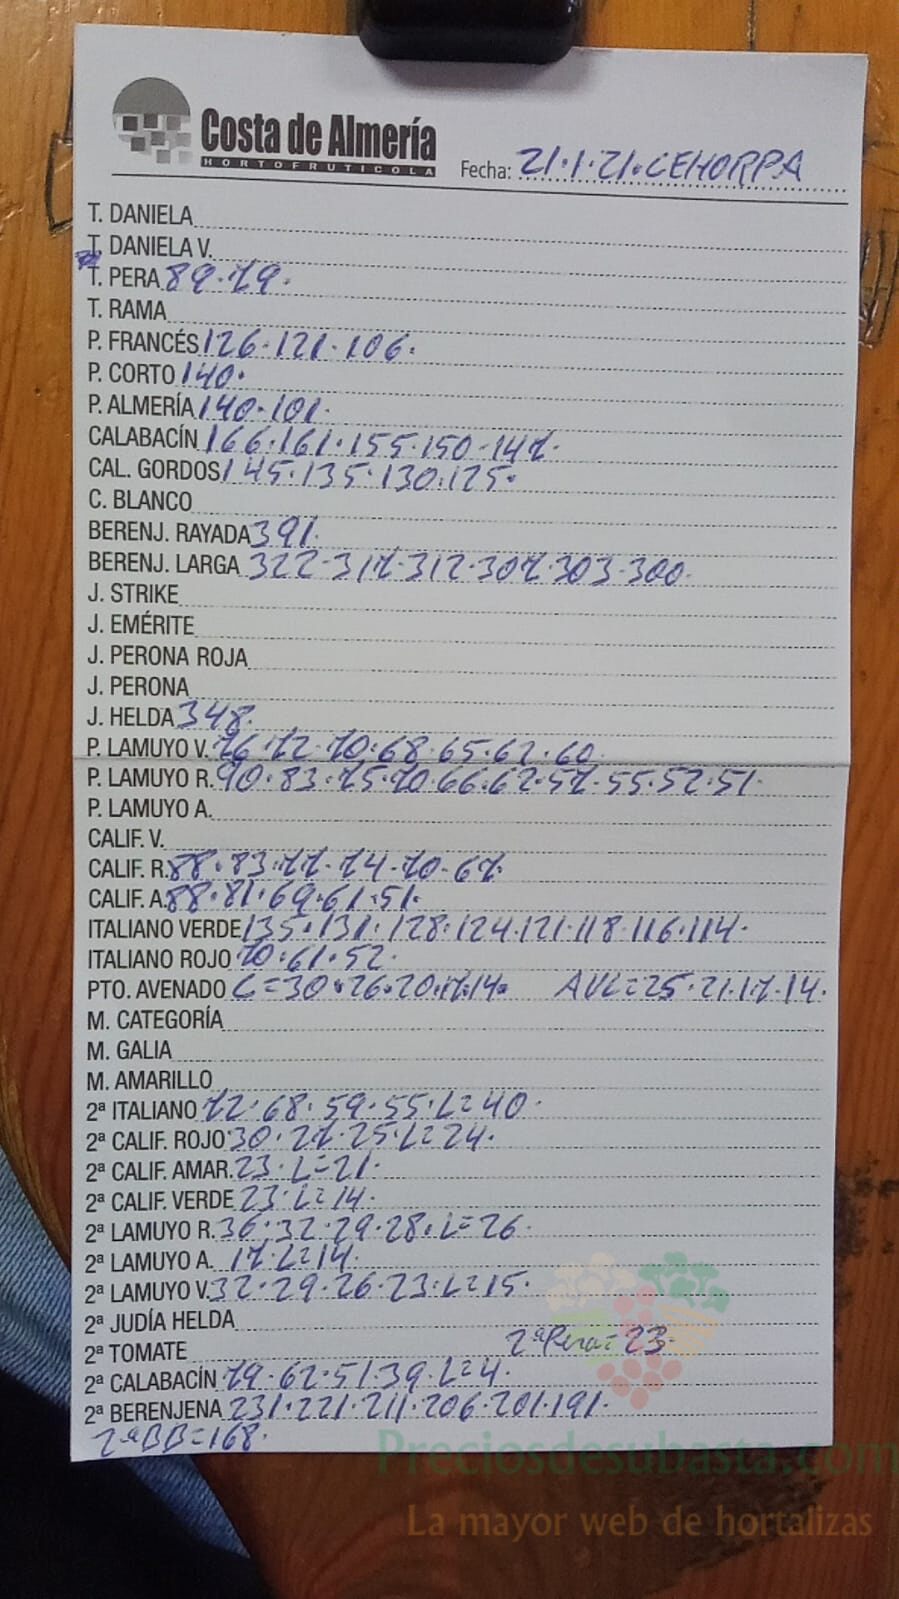 Costa de Almería
HORTOFRUTICOLA
Fecha: 21·1·21·CEHORPA
T. DANIELA
T. DANIELA V.
T. PERA 89·79·
T. RAMA
P. FRANCÉS 126·121·106·
P. CORTO 140·
P. ALMERÍA 140·101·
CALABACÍN 166·161·155·150·147·
CAL. GORDOS 145·135·130·125·
C. BLANCO
BERENJ. RAYADA 391·
BERENJ. LARGA 322·317·312·307·303·300·
J. STRIKE
J. EMÉRITE
J. PERONA ROJA
J. PERONA
J. HELDA 348·
P. LAMUYO V. 76·72·70·68·65·62·60·
P. LAMUYO R. 90·83·75·70·66·62·57·55·52·51·
P. LAMUYO A.
CALIF. V.
CALIF. R. 88·83·77·74·70·67·
CALIF. A. 88·81·69·61·51·
ITALIANO VERDE 135·131·128·124·121·118·116·114·
ITALIANO ROJO 70·61·52·
PTO. AVENADO C=30·26·20·17·14· AVL=25·21·17·14·
M. CATEGORÍA
M. GALIA
M. AMARILLO
2ª ITALIANO 72·68·59·55·L=40·
2ª CALIF. ROJO 30·27·25·L=24·
2ª CALIF. AMAR. 23·L=21·
2ª CALIF. VERDE 23·L=14·
2ª LAMUYO R. 36·32·29·28·L=26·
2ª LAMUYO A. 17·L=14·
2ª LAMUYO V. 32·29·26·23·L=15·
2ª JUDÍA HELDA
2ª TOMATE 2ªPera=23·
2ª CALABACÍN 79·62·51·39·L=4·
2ª BERENJENA 231·221·211·206·201·191·
2ªBB=168·
Preciosdesubasta.com
La mayor web de hortalizas